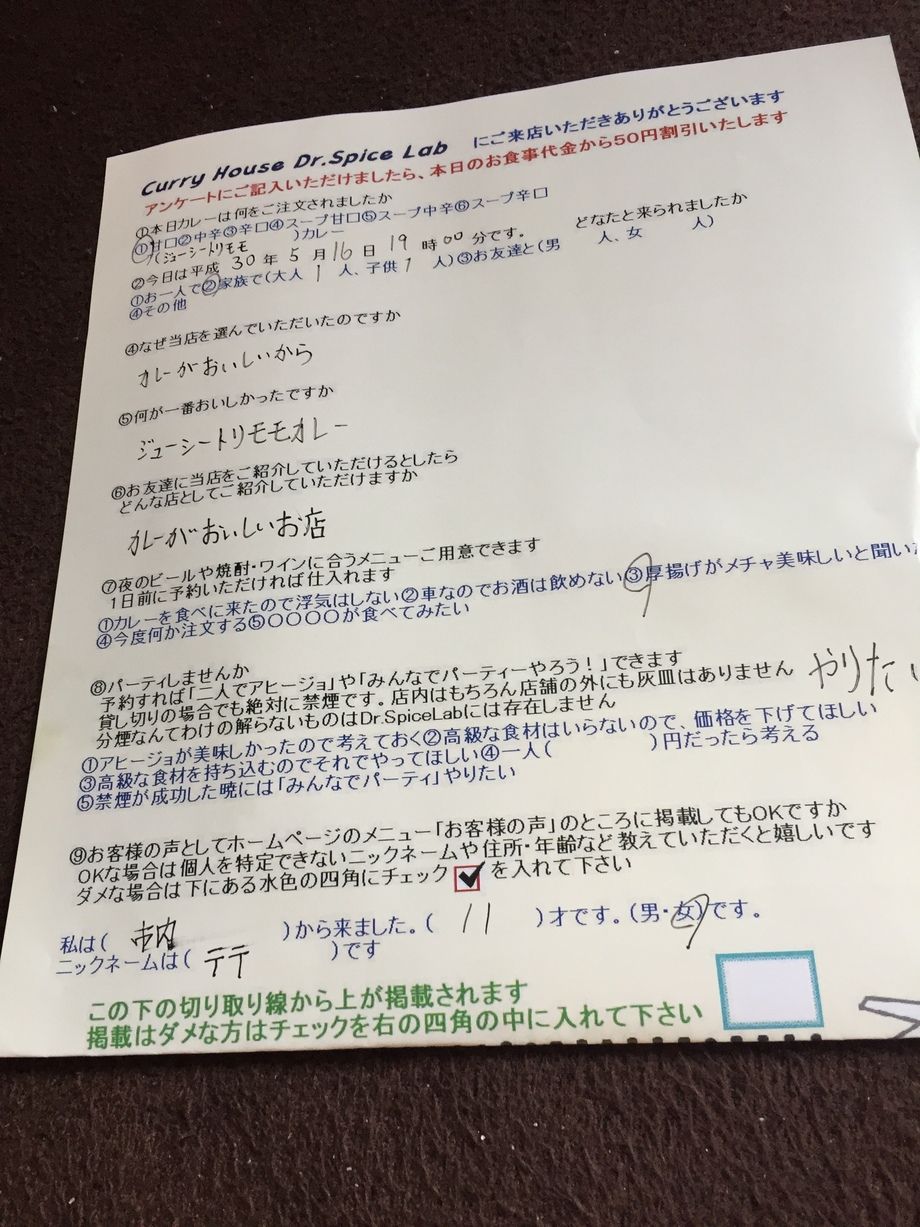 Curry House Dr.Spice Lab にご来店いただきありがとうございます
アンケートにご記入いただけましたら、本日のお食事代金から50円割引いたします
①本日カレーは何をご注文されましたか
①甘口②中辛③辛口④スープ甘口⑤スープ中辛⑥スープ辛口
(ジューシートリモモ )カレー
②今日は平成 30 年 5 月 16 日 19 時 00 分です。 どなたと来られましたか
①お一人で②家族で(大人 1 人、子供 1 人)③お友達と(男 人、女 人)
④その他
④なぜ当店を選んでいただいたのですか
カレーがおいしいから
⑤何が一番おいしかったですか
ジューシートリモモカレー
⑥お友達に当店をご紹介していただけるとしたら
どんな店としてご紹介していただけますか
カレーがおいしいお店
⑦夜のビールや焼酎・ワインに合うメニューご用意できます
1日前に予約いただければ仕入れます
①カレーを食べに来たので浮気はしない②車なのでお酒は飲めない③厚揚げがメチャ美味しいと聞いた
④今度何か注文する⑤〇〇〇〇が食べてみたい
⑧パーティしませんか
予約すれば「二人でアヒージョ」や「みんなでパーティーやろう!」できます
貸し切りの場合でも絶対に禁煙です。店内はもちろん店舗の外にも灰皿はありません やりたい
分煙なんてわけの解らないものはDr.SpiceLabには存在しません
①アヒージョが美味しかったので考えておく②高級な食材はいらないので、価格を下げてほしい
③高級な食材を持ち込むのでそれでやってほしい④一人( )円だったら考える
⑤禁煙が成功した暁には「みんなでパーティ」やりたい
⑨お客様の声としてホームページのメニュー「お客様の声」のところに掲載してもOKですか
OKな場合は個人を特定できないニックネームや住所・年齢など教えていただくと嬉しいです
ダメな場合は下にある水色の四角にチェック を入れて下さい
私は( 市内 )から来ました。( 11 )才です。(男・女)です。
ニックネームは( テテ )です
この下の切り取り線から上が掲載されます
掲載はダメな方はチェックを右の四角の中に入れて下さい